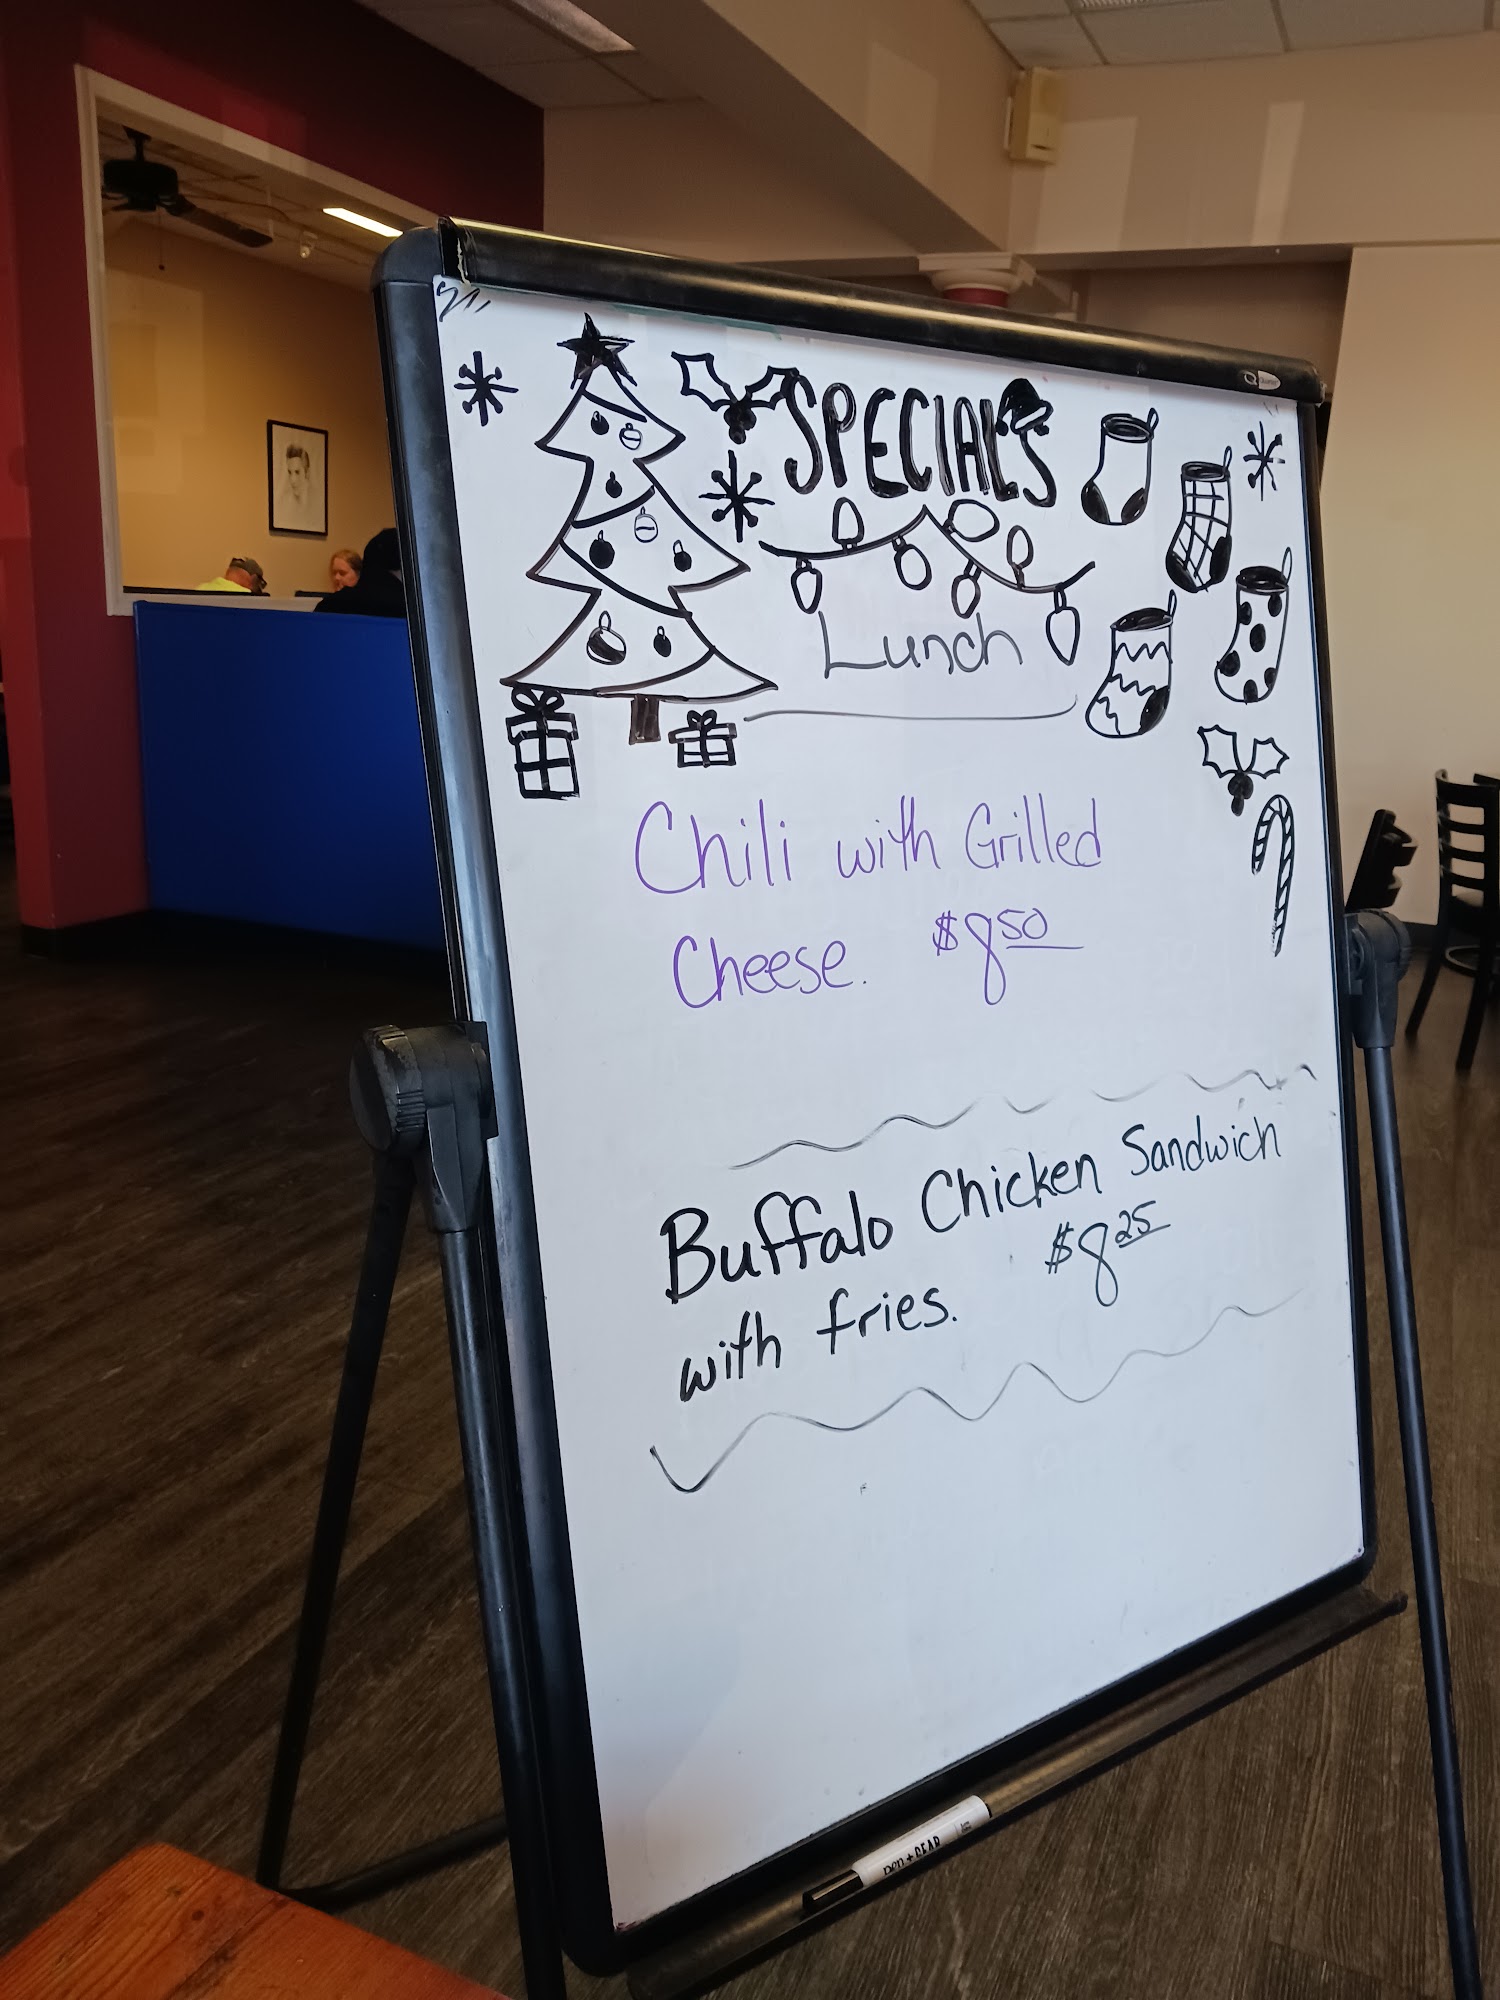 SPECIALS
Lunch
Chili with Grilled
Cheese. $8.50
Buffalo Chicken Sandwich
with fries. $8.25
pen + GEAR